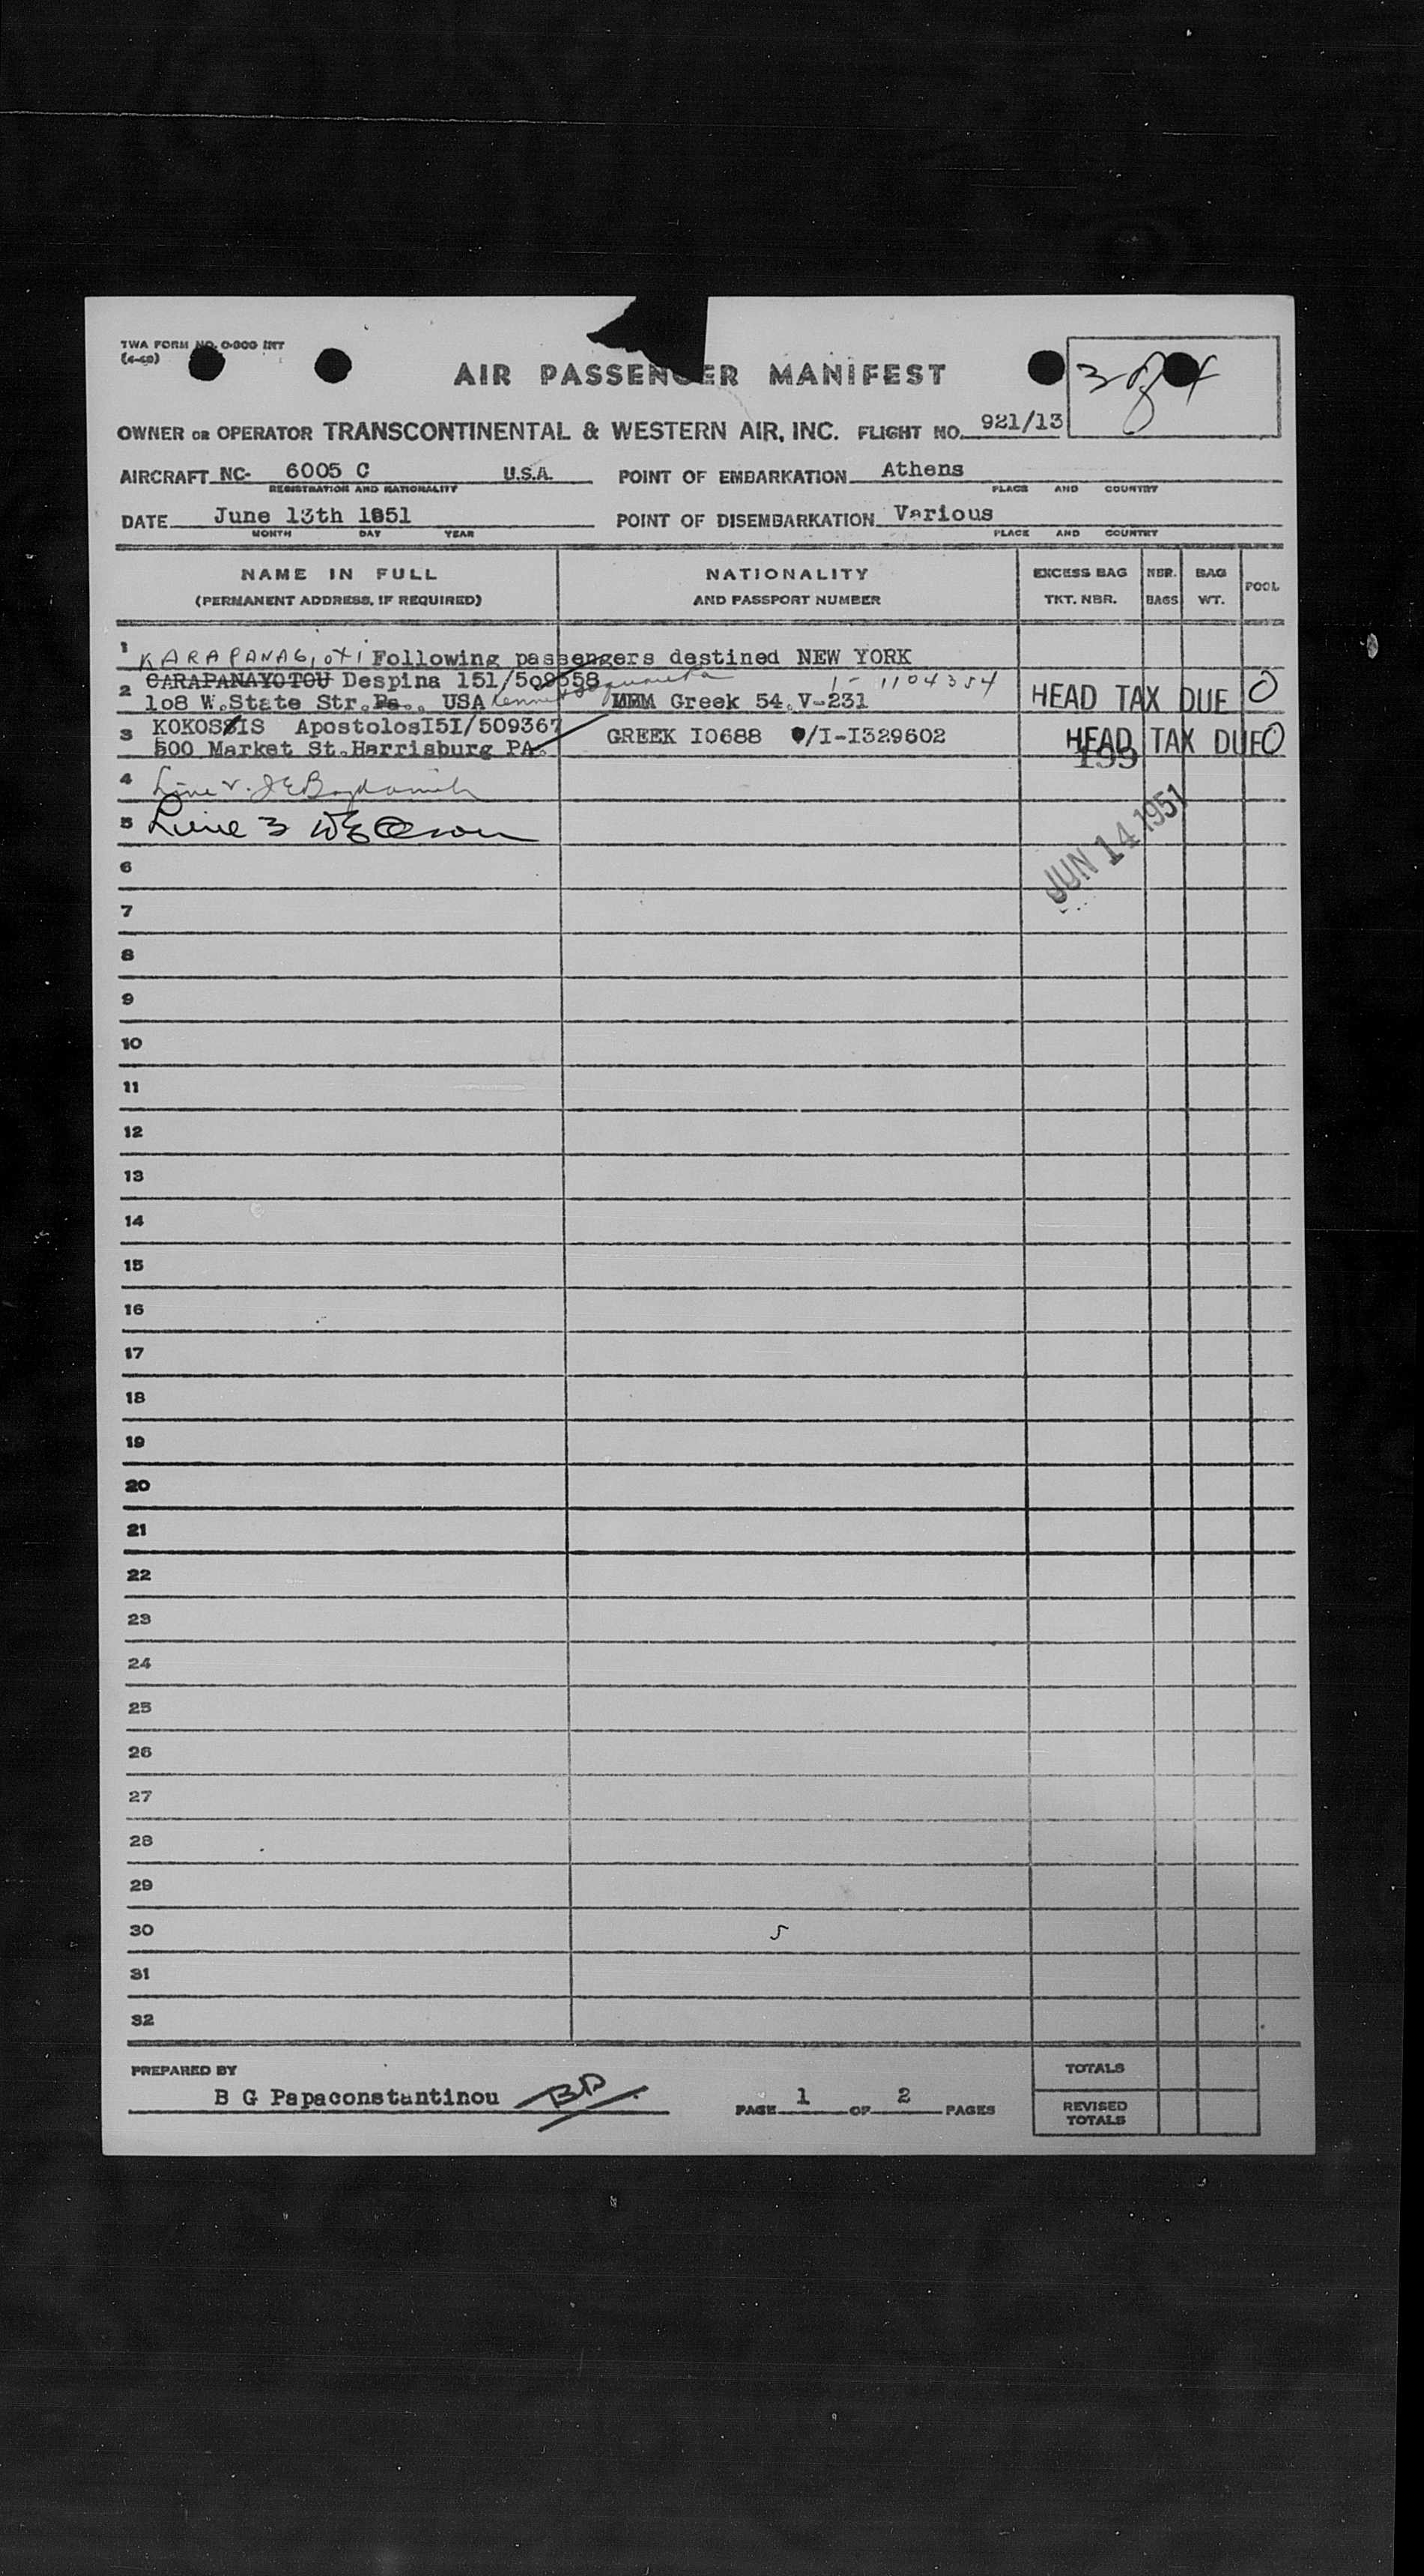 TWA FORM NO. O-800 INT
(4-48)
3 of 4
AIR PASSENGER MANIFEST
OWNER OR OPERATOR TRANSCONTINENTAL & WESTERN AIR, INC. FLIGHT NO. 921/13
AIRCRAFT NC- 6005 C U.S.A. POINT OF EMBARKATION Athens
REGISTRATION AND NATIONALITY PLACE AND COUNTRY
DATE June 13th 1951 POINT OF DISEMBARKATION Various
MONTH DAY YEAR PLACE AND COUNTRY
NAME IN FULL NATIONALITY EXCESS BAG NBR. BAG POOL
(PERMANENT ADDRESS, IF REQUIRED) AND PASSPORT NUMBER TKT. NBR. BAGS WT.
1 KARAPANAGIOTI Following passengers destined NEW YORK
2 CARAPANAYOTOU Despina 151/509558 1- 1104354
108 W.State Str. Pa.. USA Greek 54.V-231 HEAD TAX DUE 0
3 KOKOSSIS Apostolos I5I/509367
500 Market St.Harrisburg PA. GREEK I0688 /I-I329602 HEAD TAX DUE 0
199
4 Line 2.
5 Line 3
JUN 14 1951
6
7
8
9
10
11
12
13
14
15
16
17
18
19
20
21
22
23
24
25
26
27
28
29
30 5
31
32
PREPARED BY TOTALS
B G Papaconstantinou BP PAGE 1 OF 2 PAGES REVISED
TOTALS